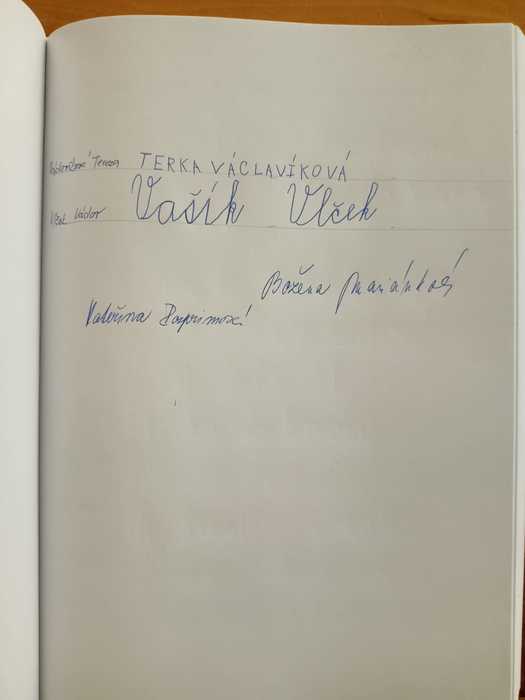 Václavíková Tereza TERKA VÁCLAVÍKOVÁ
Vlček Václav Vašík Vlček
Božena
Kateřina